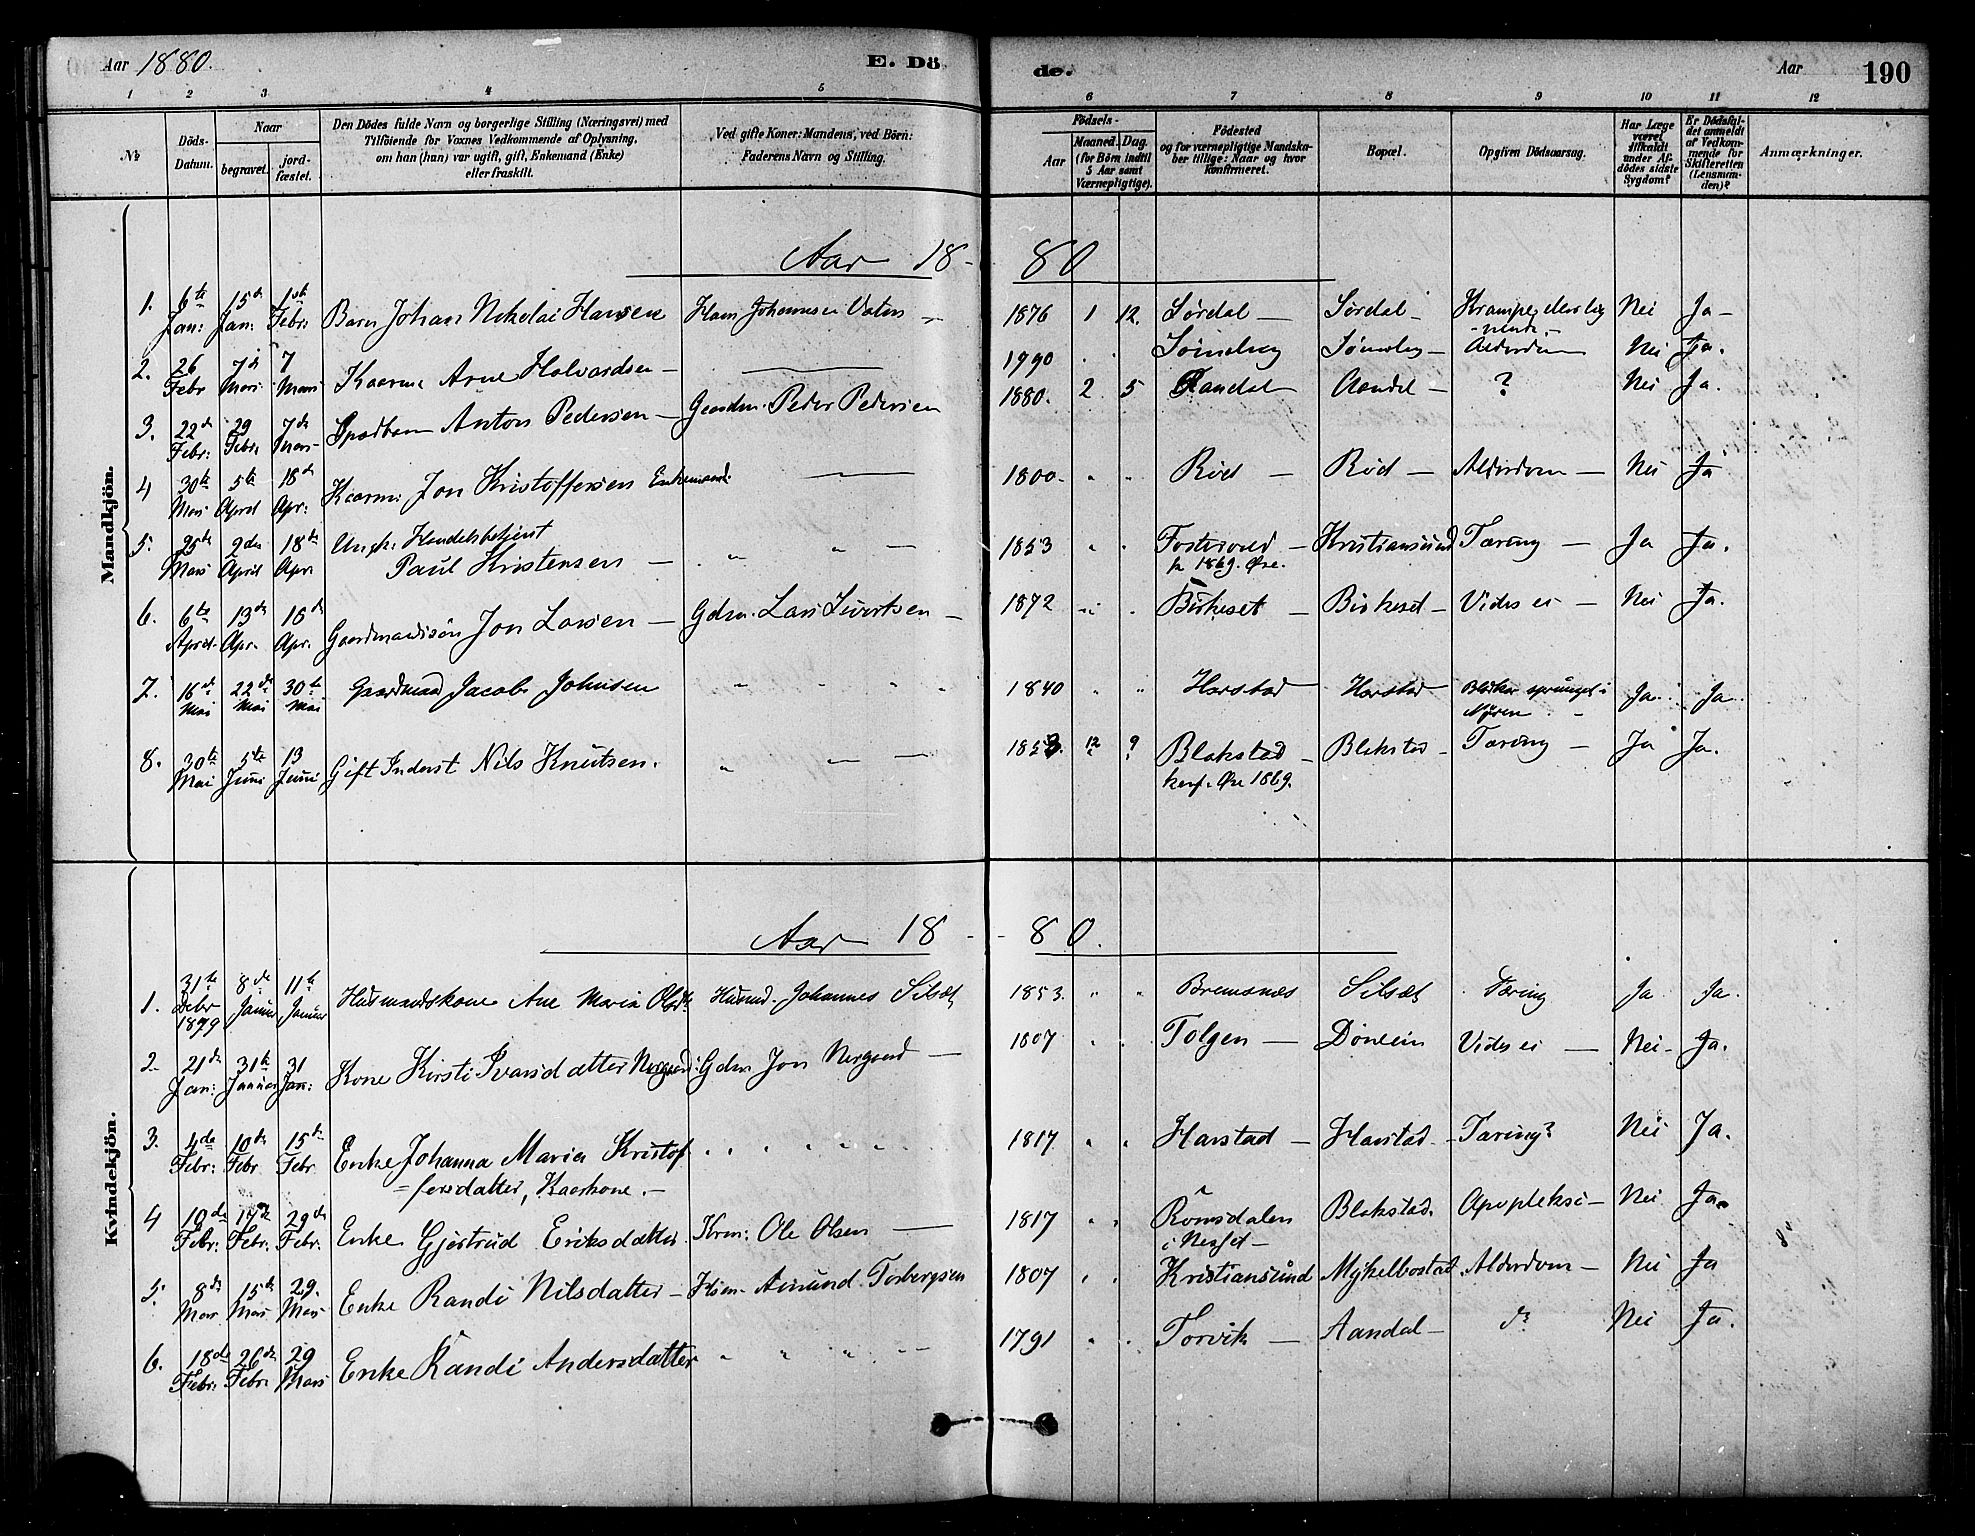 Aar 1880.
E. Dö
de.
Aar
190
1 2 3 4 5 6 7 8 9 10 11 12
№
Döds-Datum.
Naar
begravet.
jord-fæstet.
Den Dödes fulde Navn og borgerlige Stilling (Næringsvei) med
Tilföiende for Voxnes Vedkommende af Oplysning,
om han (han) var ugift, gift, Enkemand (Enke)
eller fraskilt.
Ved gifte Koner: Mandens, ved Börn:
Faderens Navn og Stilling.
Födsels-
Aar
Maaned. Dag.
(for Börn indtil
5 Aar samt
Værnepligtige).
Födested
og for værnepligtige Mandska-
ber tillige: Naar og hvor
konfirmeret.
Bopæl.
Opgiven Dödsaarsag.
Har Læge
været
tilkaldt
under Af-
dödes sidste
Sygdom?
Er Dödsfal-
det anmeldt
af Vedkom-
mende for
Skifteretten
(Lensman-
den)?
Anmærkninger.
Mandkjön.
Aar 18-80
1. 6te Jan: 15de Jan: 1ste Febr: Barn Johan Nikolai Hansen Hans Johannesen Vaten 1876 1 12. Sørdal Sørdal Nei Ja
2. 26 Febr 7de Mars 7 Mars Kaarm Arne Halvardsen 1790 Alderdom Nei Ja.
3. 22de Febr: 29 Febr. 7de Mars Spædbarn Anton Pedersen Gaardm. Peder Pedersen 1880. 2 5 Aandal ? Nei Ja.
4 30te Mars 5te April 18de Apr: Kaarm: Jon Kristoffersen Enkemand. 1800 Rød Rød Alderdom Nei Ja
5. 25de Mars 2den April 18de Apr. Ungk: Handelsbetjent
Paul Kristensen 1853 Kristiansund Tæring Ja Ja.
k. 1869. Øre.
6. 6te April 13de Apr. 18de Apr. Gaardmandssøn Jon Larsen Gdm. Lars Sivertsen 1872 Birkeset Birkeset Vides ei Nei Ja.
7. 16de Mai 22de Mai 30te Mai Gaardmand Jacob Johnsen 1840 Harstad Harstad Ja. Ja
8. 30te Mai 5te Juni 13 Juni Gift Inderst Nils Knutsen. 1853. 12 9 Blakstad Blakstad Tæring Ja Ja.
konf. Øre 1869.
Kvindekjön.
Aar 18-80.
1. 31te Decbr 1879 8de Januar 11te Januar Husmandskone Ane Maria Olsdtr Husmd. Johannes Silsæt 1853. Bremsnæs Silsæt Tæring Ja Ja.
2. 21de Jan: 31te Januar 31 Jan: Kone Kirsti Ivarsdatter Nergaard: Gdm Jon Nergaard 1807 Tolgen Vides ei Nei Ja.
3. 4de Febr: 10de Febr. 15de Febr. Enke Johanna Maria Kristof
=fersdatter, Kaarkone. 1817 Harstad Harstad Tæring? Nei Ja.
4 10de Febr: 17de Febr: 29de Febr: Enke Gjertrud Eriksdatter Krm: Ole Olsen 1817 Romsdalen
i Nesset Blakstad. Apopleksi Nei Ja.
5. 8de Mars 15de Mars 29. Mars Enke Randi Nilsdatter Hsm. Amund Torbergsen 1807 Kristiansund Myklebostad Alderdom Nei Ja
6. 18de Febr: 26de Febr. 29 Mars Enke Randi Andersdatter 1791 Torvik Aandal do Nei Ja.